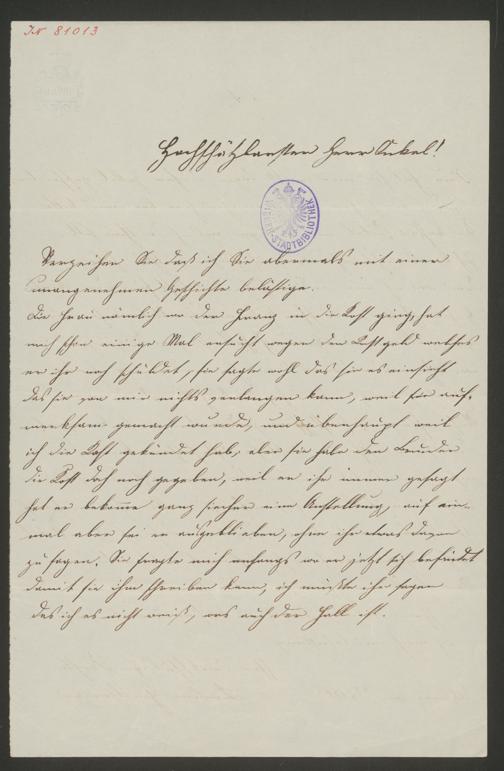 IN 81013
Hochschätzbarster Herr Nikel!
WIENER STADTBIBLIOTHEK
Verzeihen Sie daß ich Sie abermals mit einer
unangenehmen Geschichte belästige.
Die Frau nämlich wo der Franz in die Kost ging, hat
mich schon einige Mal ersucht wegen dem Kostgeld welches
er ihr noch schuldet, sie sagte wohl das sie es einsieht
das sie von mir nichts verlangen kann, weil sie auf-
merksam gemacht wurde, und überhaupt weil
ich die Kost gekündet hab, aber sie habe dem Bruder
die Kost doch noch gegeben, weil er ihr immer gesagt
hat er bekomme ganz sicher eine Anstellung, auf ein-
mal aber sei er ausgeblieben, ohne ihr etwas davon
zu sagen. Sie fragte mich anfangs wo er jetzt sich befindet
damit sie ihm schreiben kann, ich mußte ihr sagen
das ich es nicht weiß, was auch der Fall ist.